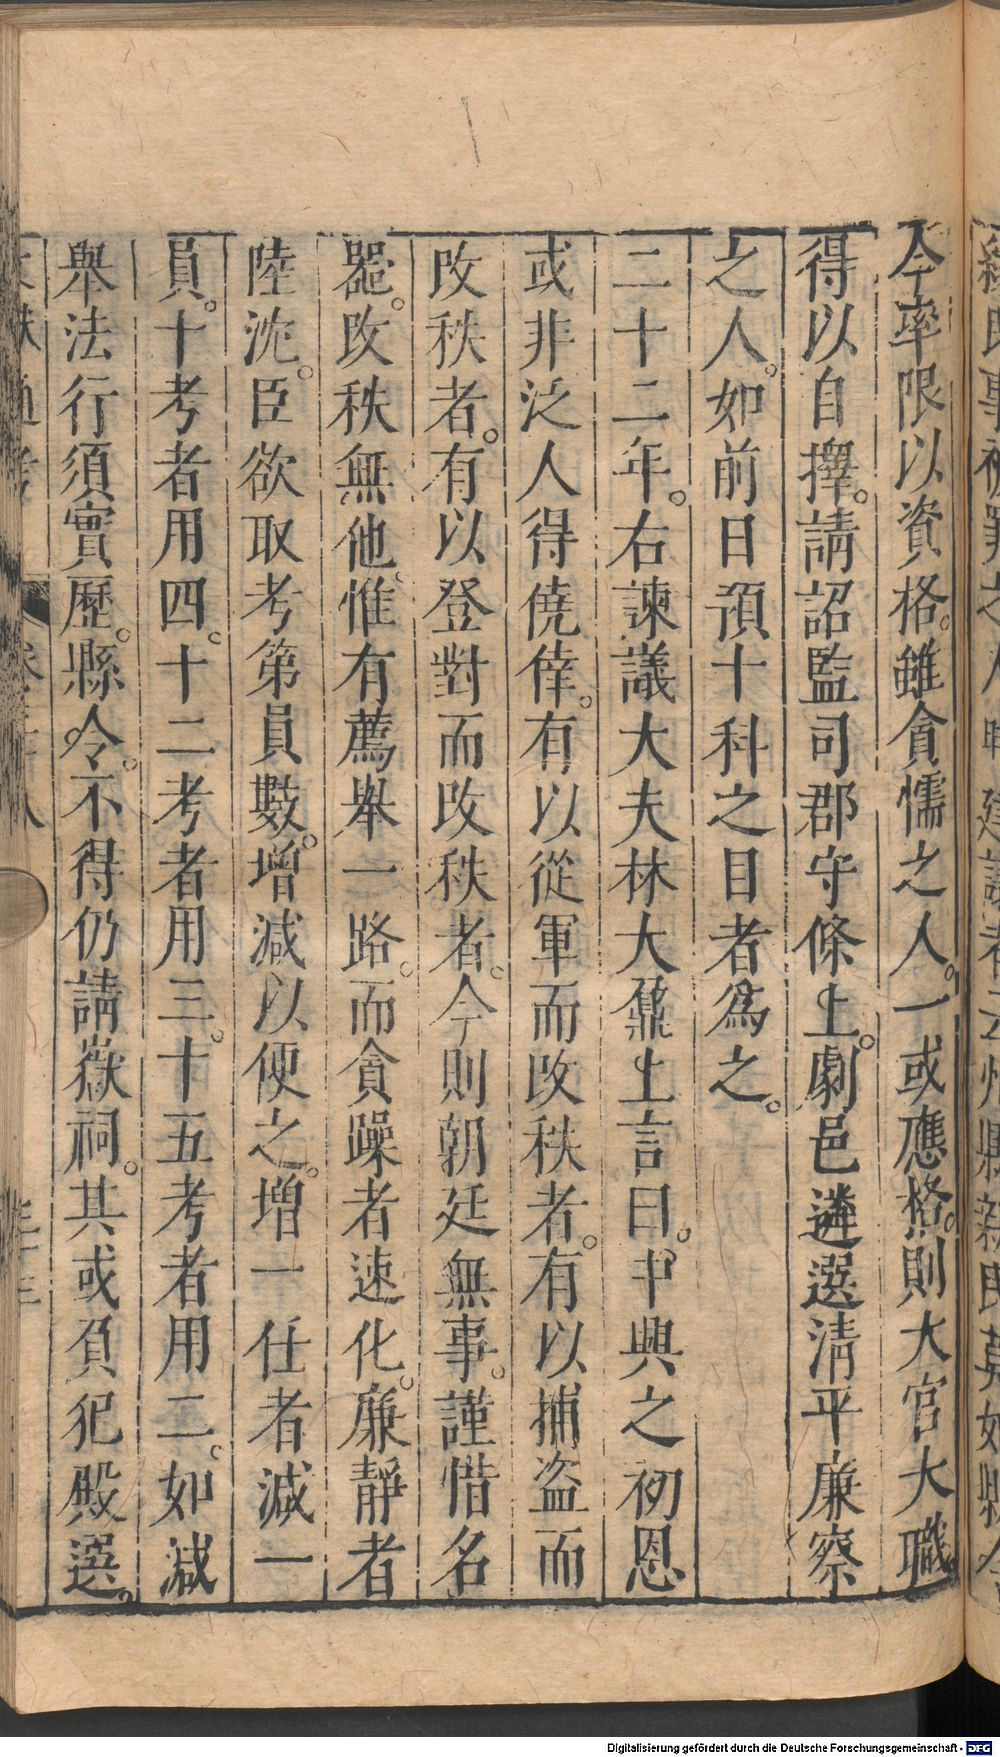 今率限以資格。雖貪懦之人。一或應格。則大官大職。
得以自擇。請詔監司郡守條上。劇邑遴選清平廉察
之人。如前日預十科之目者爲之。
二十二年。右諫議大夫林大鼐上言曰。中興之初恩
或非泛人得僥倖。有以從軍而改秩者。有以捕盜而
改秩者。有以登對而改秩者。今則朝廷無事。謹惜名
器。改秩無他。惟有薦舉一路。而貪躁者速化。廉靜者
陸沈。臣欲取考第員數。增減以便之。增一任者減一
員。十考者用四。十二考者用三。十五考者用二。如減
舉法行須實歷。縣令。不得仍請嶽祠。其或負犯殿選。
Digitalisierung gefördert durch die Deutsche Forschungsgemeinschaft - DFG